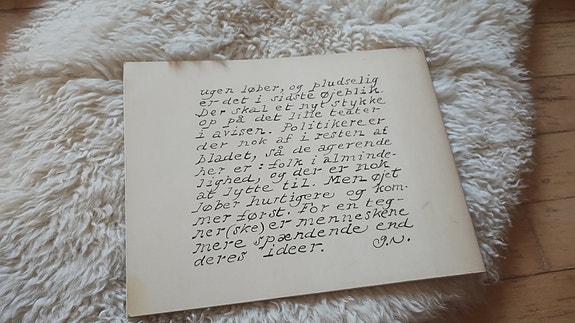 ugen løber, og pludselig
er det i sidste øjeblik.
Der skal et nyt stykke
op på det lille teater
i avisen. Politikere er
der nok af i resten af
bladet, så de agerende
her er: folk i alminde-
lighed, og der er nok
at lytte til. Men øjet
løber hurtigere og kom-
mer først. For en teg-
ner(ske) er menneskene
mere spændende end
deres ideer. G.N.